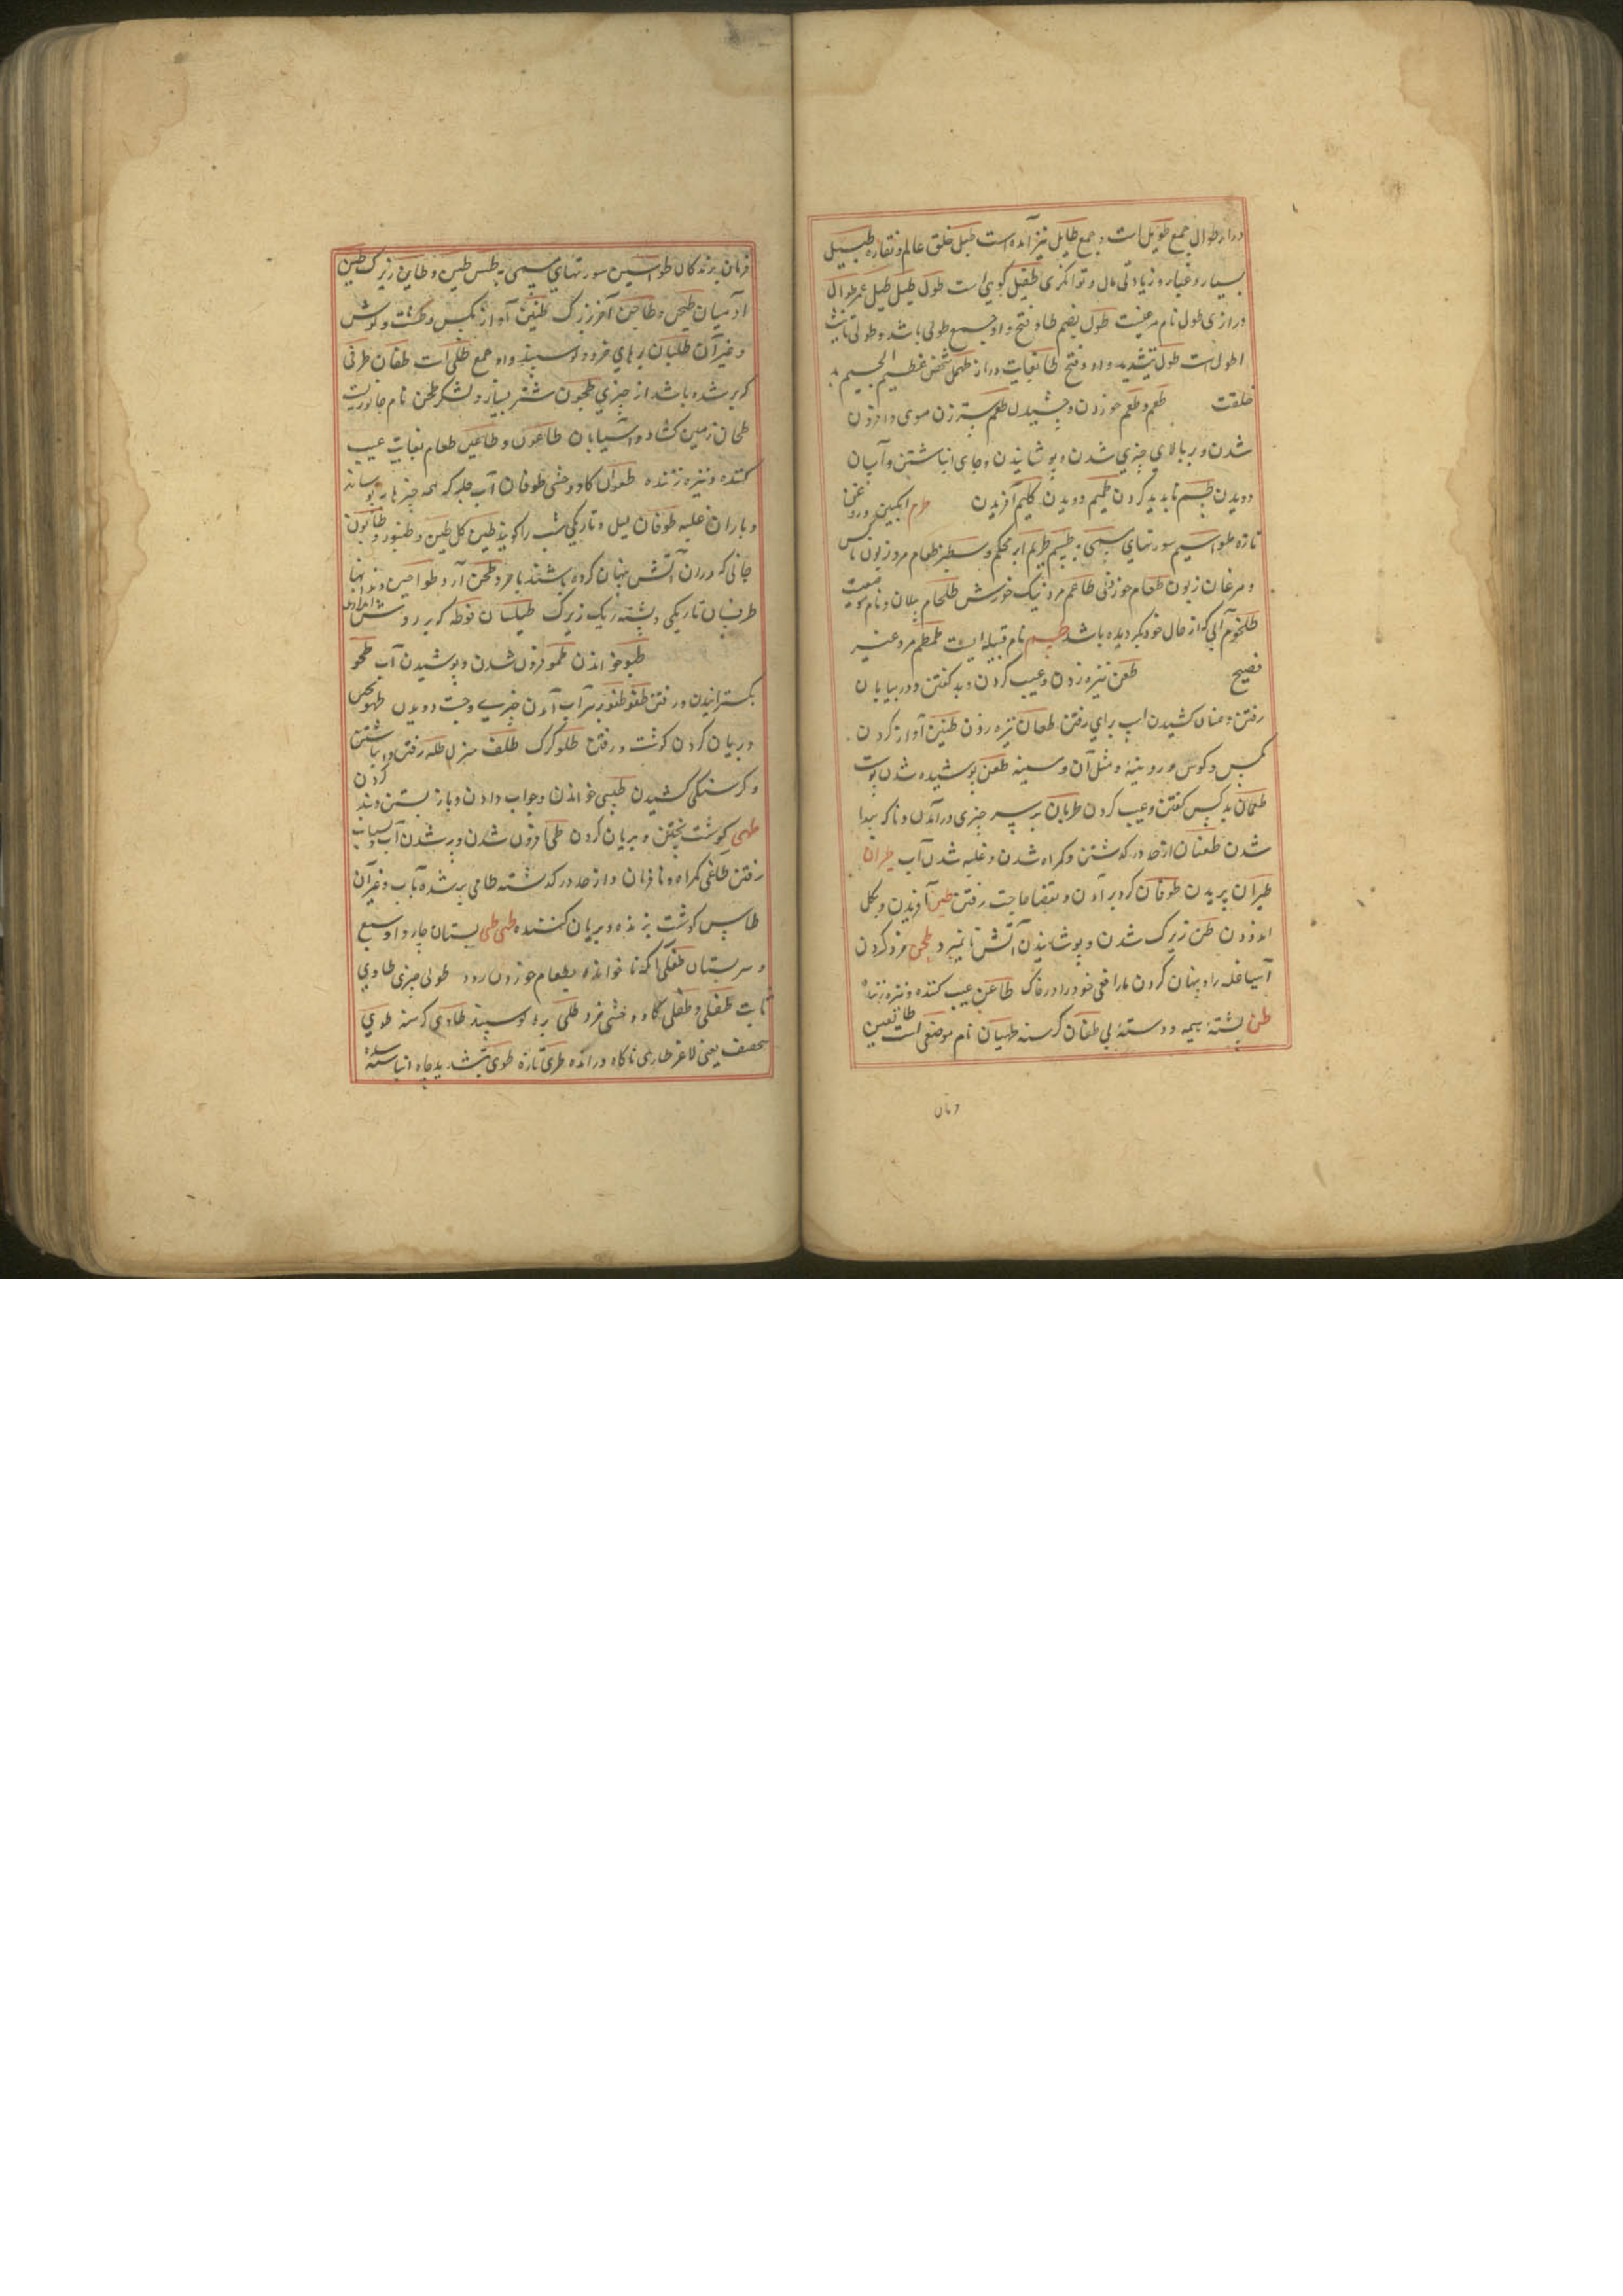 دراز طوال جمع طویل است و جمع طایل نیز آمده است طبل خلق عالم و نقاره طیسل
بسیار و غبار و زیادتی مال و توانکری طفیل کوی است طول طیل طیل عمر طوال
درازی طول نام مرغیست طول بضم طا و فتح واو جمع طولی باشد و طولی تانیث
اطول است طول بتشدید واو و فتح طا بغایت دراز طهمل شخص عظیم الجسیم بد
خلقت طعم و طعم خوردن و چشیدن طم ستردن موی و افزون
شدن و بر بالای چیزی شدن و پوشانیدن و جای انباشتن و آسان
دویدن طسم ناپدید کردن طمیم دویدن طیم آفریدن طرم انکبین و روغن
تازه طواسیم سورتهای مسمی به طسم طریم ابر محکم و سطبر طغام مرد زبون ناکس
و مرغان زبون طعام خوردنی طاعم مرد نیک خورش طلخام پیلان و نام موضعیست
طلخوم آبی که از حال خود بکردیده باشد طسم نام قبیله ایست طمطم مرد غیر
فصیح طعن نیزه زدن و عیب کردن و بد کفتن و در بیابان
رفتن و عنان کشیدن اسب برای رفتن طعان نیزه زدن طنین آواز کردن
مکس و کوس و رویینه و مثل آن و سینه طعن پوشیده شدن پوست
طعان بد کسی کفتن و عیب کردن طریان بر سر چیزی درآمدن و ناکه پیدا
شدن طغیان از حد درکذشتن و کمراه شدن و غلبه شدن آب طیران
طیران پریدن طوفان کرد برآمدن و بقضا حاجت رفتن طین آفریدن و بکل
اندودن طبن زیرک شدن و پوشانیدن آتش تا نمیرد طحن خرد کردن
آسیا غله را و پنهان کردن مار افعی خود را در خاک طاعن عیب کننده و نیزه زننده
طن پشتهٔ هیمه و دستهٔ نی طیان کرسنه طهیان نام موضعی است طایعین
فرمان
فرمان برندکان طواسین سورتهای مسمی به طس طبین و طابن زیرک طین
آدمیان طیجن و طاجن آخر زرک طنین آواز مکس و طشت و کوش
و غیر آن طلیان برهای خرد کوسپند و او جمع طلی است طفان ظرفی
که پر شده باشد از چیزی طحون شتر بسیار و لشکر طحن نام جانوریست
طحان زمین کشاد و آسیابان طاعون و طاعین طعام بغایت عیب
کننده و نیزه زننده طعوان کاو وحشی طوفان آب جله که همه چیزها بپوشاند
و باران غلبه طوفان لیل و تاریکی شب را کویند طین کل طین و طنبور و طابون
جائی که در آن آتش پنهان کرده باشند تا نمرد طحن آرد طواحین دندانها
طرفسان تاریکی و پشته ریک زیرک طیلسان فوطه که بر دوش اندازند
طبو خواندن طمو افزون شدن و پوشیدن آب طحو
بکسترانیدن و رفتن طفو طفو بر سر آب آمدن چیزی و جست دویدن طهو پختن
و بریان کردن کوشت و رفتن طلو کرک طلف منزل طله رفتن و نباشتن
و کرسنکی کشیدن طبی خواندن و جواب دادن و باز بستن و بند کردن
طهی کوشت پختن و بریان کردن طمی افزون شدن و پر شدن آب و شتاب
رفتن طاغی کمراه و نافرمان و از حد درکذشته طامی پر شده بآب و غیر آن
طاهی کوشت پزنده و بریان کننده طبی طبی پستان چاروا و سبع
و سر پستان طفیلی آنکه ناخوانده بطعام خوردن رود طولی چیزی طاوی
ثابت طغی و طغی کاو وحشی خرد طلی بره کوسپند طاوی کرسنه طوی
ضعیف یعنی لاغر طاری ناکاه درآمده طری تازه طوی بتشدید چاه انباشته شده